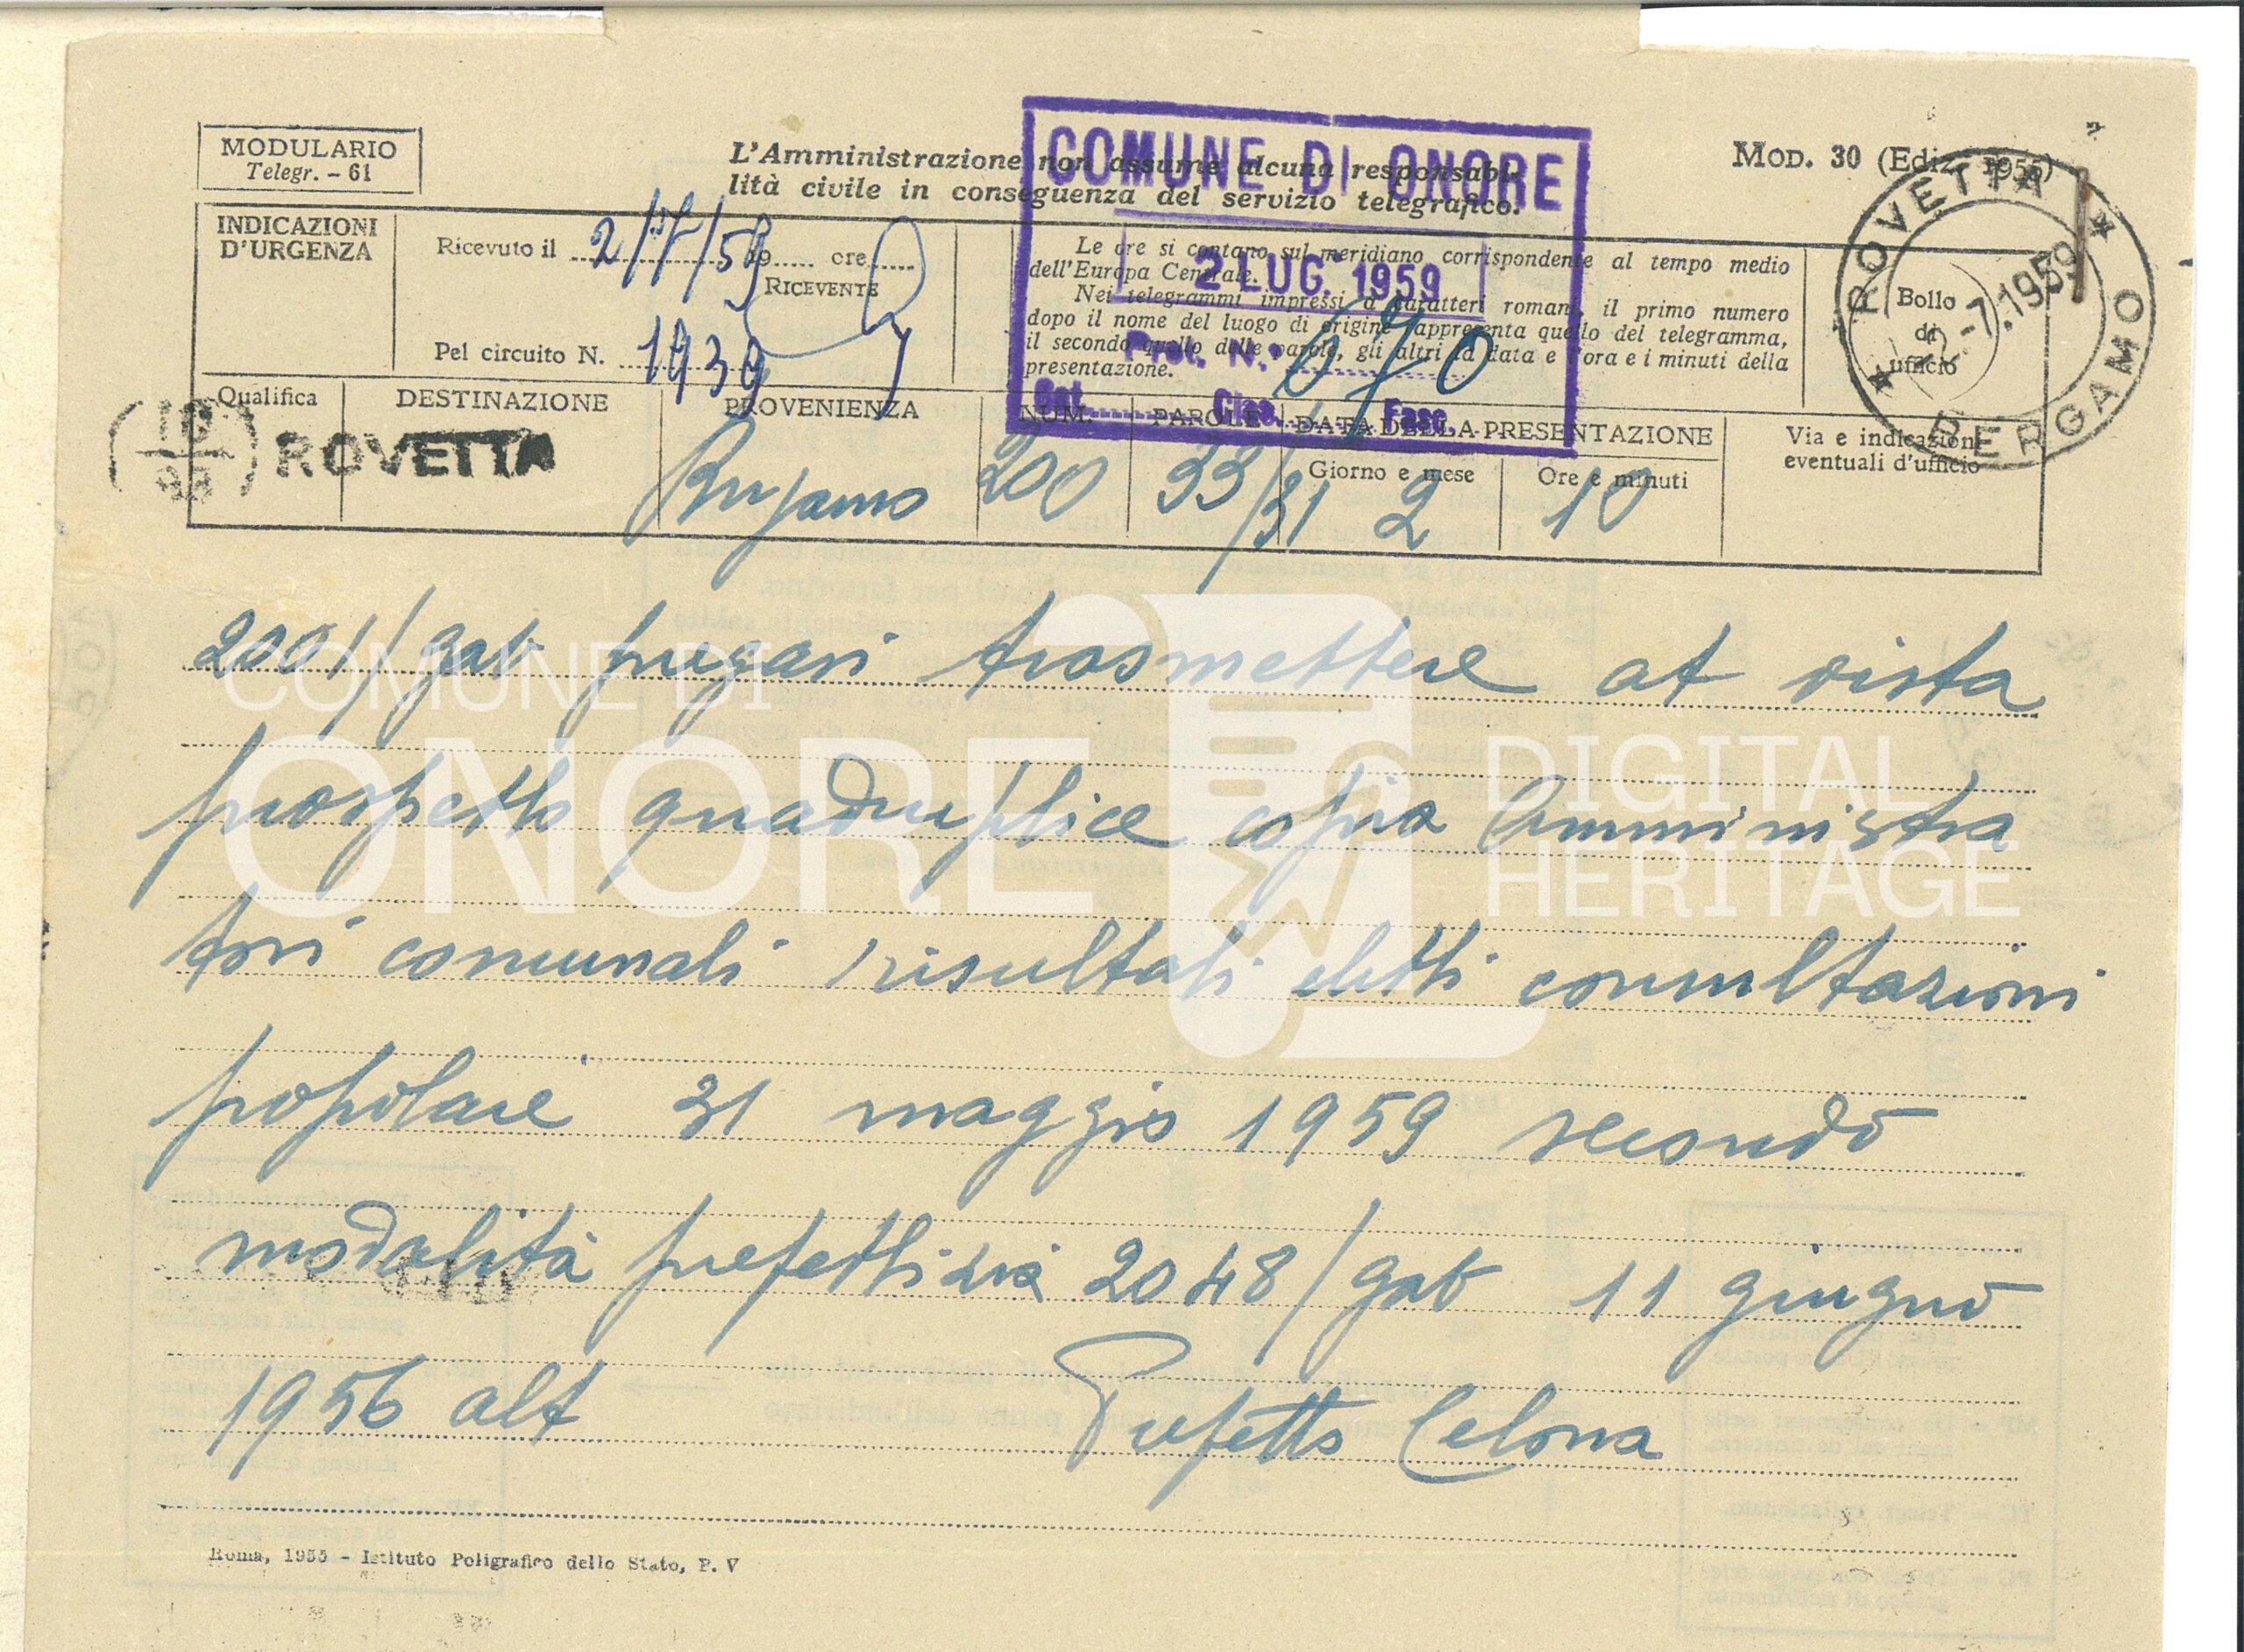 MODULARIO
Telegr. - 61
L'Amministrazione non assume alcuna responsabi-
lità civile in conseguenza del servizio telegrafico.
MOD. 30 (Ediz. 1955)
COMUNE DI ONORE
2 LUG. 1959
Prot. N. 670
Cat. Clas. Fasc.
ROVETTA
BERGAMO
2.-7.1959
INDICAZIONI
D'URGENZA
Ricevuto il 2/7/59 19 ore
RICEVENTE
Pel circuito N. 1939
Le ore si contano sul meridiano corrispondente al tempo medio
dell'Europa Centrale.
Nei telegrammi impressi a caratteri romani, il primo numero
dopo il nome del luogo di origine rappresenta quello del telegramma,
il secondo quello delle parole, gli altri la data e l'ora e i minuti della
presentazione.
Bollo
di
ufficio
Qualifica
DESTINAZIONE
PROVENIENZA
NUM.
PAROLE
DATA DELLA PRESENTAZIONE
Giorno e mese
Ore e minuti
Via e indicazioni
eventuali d'ufficio
ROVETTA
Bergamo 200 33/31 2 10
2001/gab pregasi trasmettere at vista
prospetto quadruplice copia Amministra
tori comunali risultati eletti consultazioni
popolari 31 maggio 1959 secondo
modalità prefettizia 2048/gab 11 giugno
1956 alt
Prefetto Celona
Roma, 1955 - Istituto Poligrafico dello Stato, P. V
COMUNE DI
ONORE
DIGITAL
HERITAGE